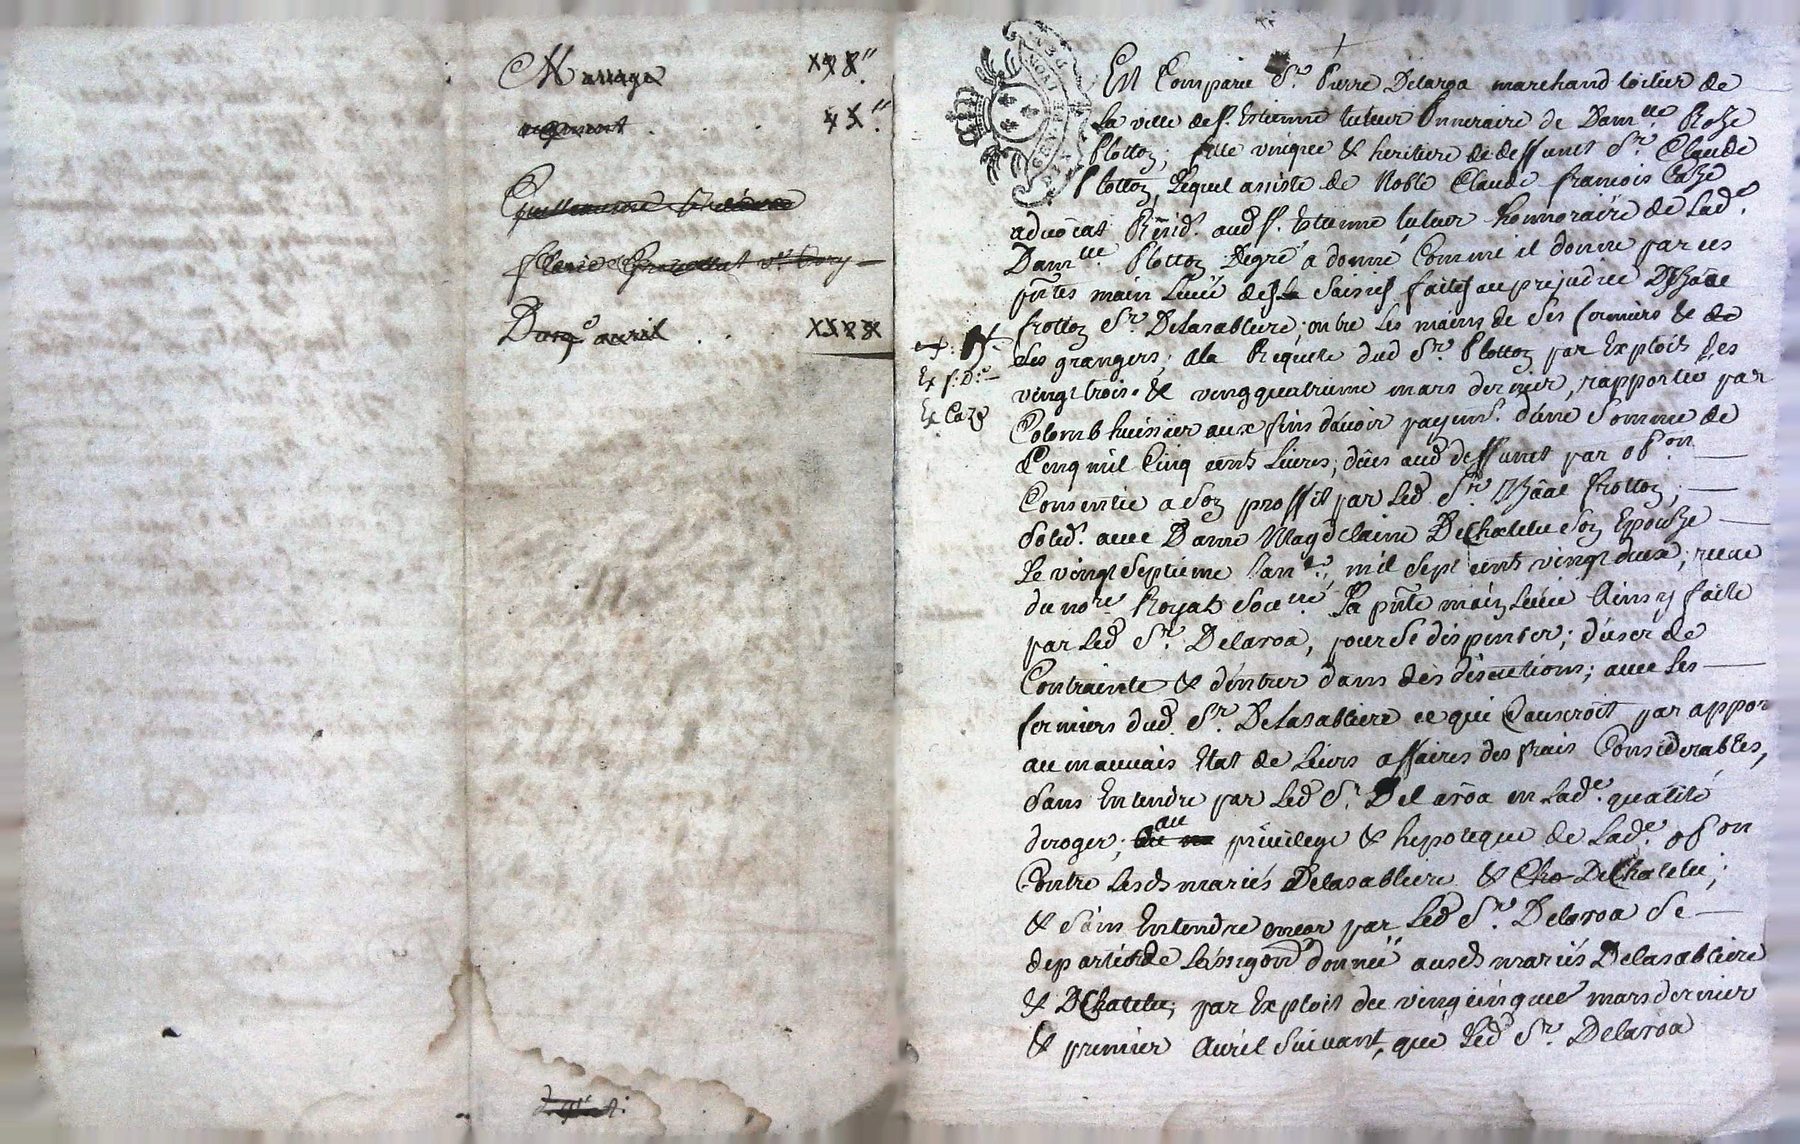 Mariage xxx."
augment . . . xx."
Ducq.e avril . . xxxx
Est Comparu Sr. Pierre Delaroa marchand toilier de
La ville de St. Estienne tuteur Onneraire de Dam.lle Roze
Plotton; fille unique & heritiere de deffunct Sr. Claude
Plotton, Lequel assisté de Noble Claude françois Caze
advocat Resid.t aud St. Estienne tuteur honnoraire de Lad.e
Dam.lle Plotton Degré a donné Comme il donne par ces
pntes main Levée des Saisies faites au prejudice D'Izaac
frotton Sr. Delasabliere; entre Les mains de Ses fermiers & de
Ses grangers; ala Requete dud Sr. Plotton par Exploits des
vingt trois. & vingquatrieme mars dernier, rapportes par
Colomb huissier aux fins d'avoir paymt. d'une Somme de
Cinq mil Cinq cents Livres; düe aud deffunct par obon
Ex Caze
Consentie a Son proffit par Led Sr. Izaac frotton;
Solid. avec Dame Magdelaine DeChatelu Son Epouze
Le vingt Septieme Jan.er, mil Sept cents vingt deux; receue
du nore. Royal Sous.né La pnte main Levée Ainsy faite
par Led Sr. Delaroa, pour Se dispenser; d'user de
Contrainte & d'entrer dans des discutions; avec Les
fermiers dud. Sr. Delasabliere ce qui Causeroit par appor
au mauvais Etat de Leurs affaires des frais Considerables,
Sans Entendre par Led Sr. Delaroa en Lad.e qualité
deroger; au privilege & hipoteque de Lad.e obon
Contre Lesds mariés Delasabliere & DeChatelu;
& Sans Entendre encor par Led Sr. Delaroa Se
departir de L'assigon donnée ausds mariés Delasabliere
& DeChatelu; par Exploit du vingcinque mars dernier
& premier Avril Suivant, que Led Sr. Delaroa